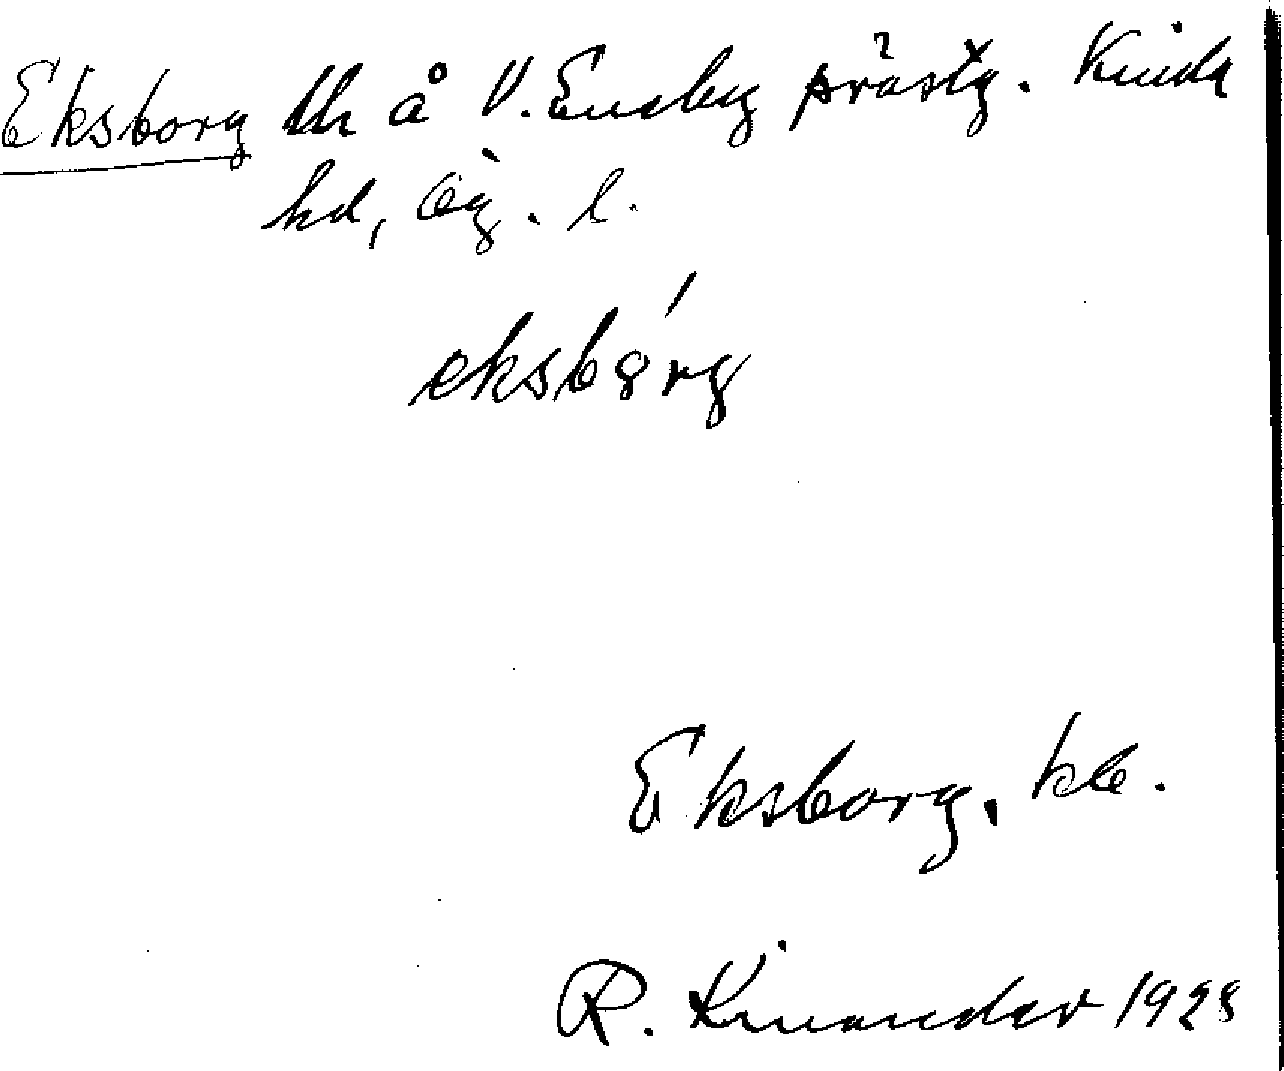 Eksborg lh å V. Eneby prästg. Kinda
hd, Ög. l.
eksbǫrg
Eksborg, kb.
R. Kinander 1928